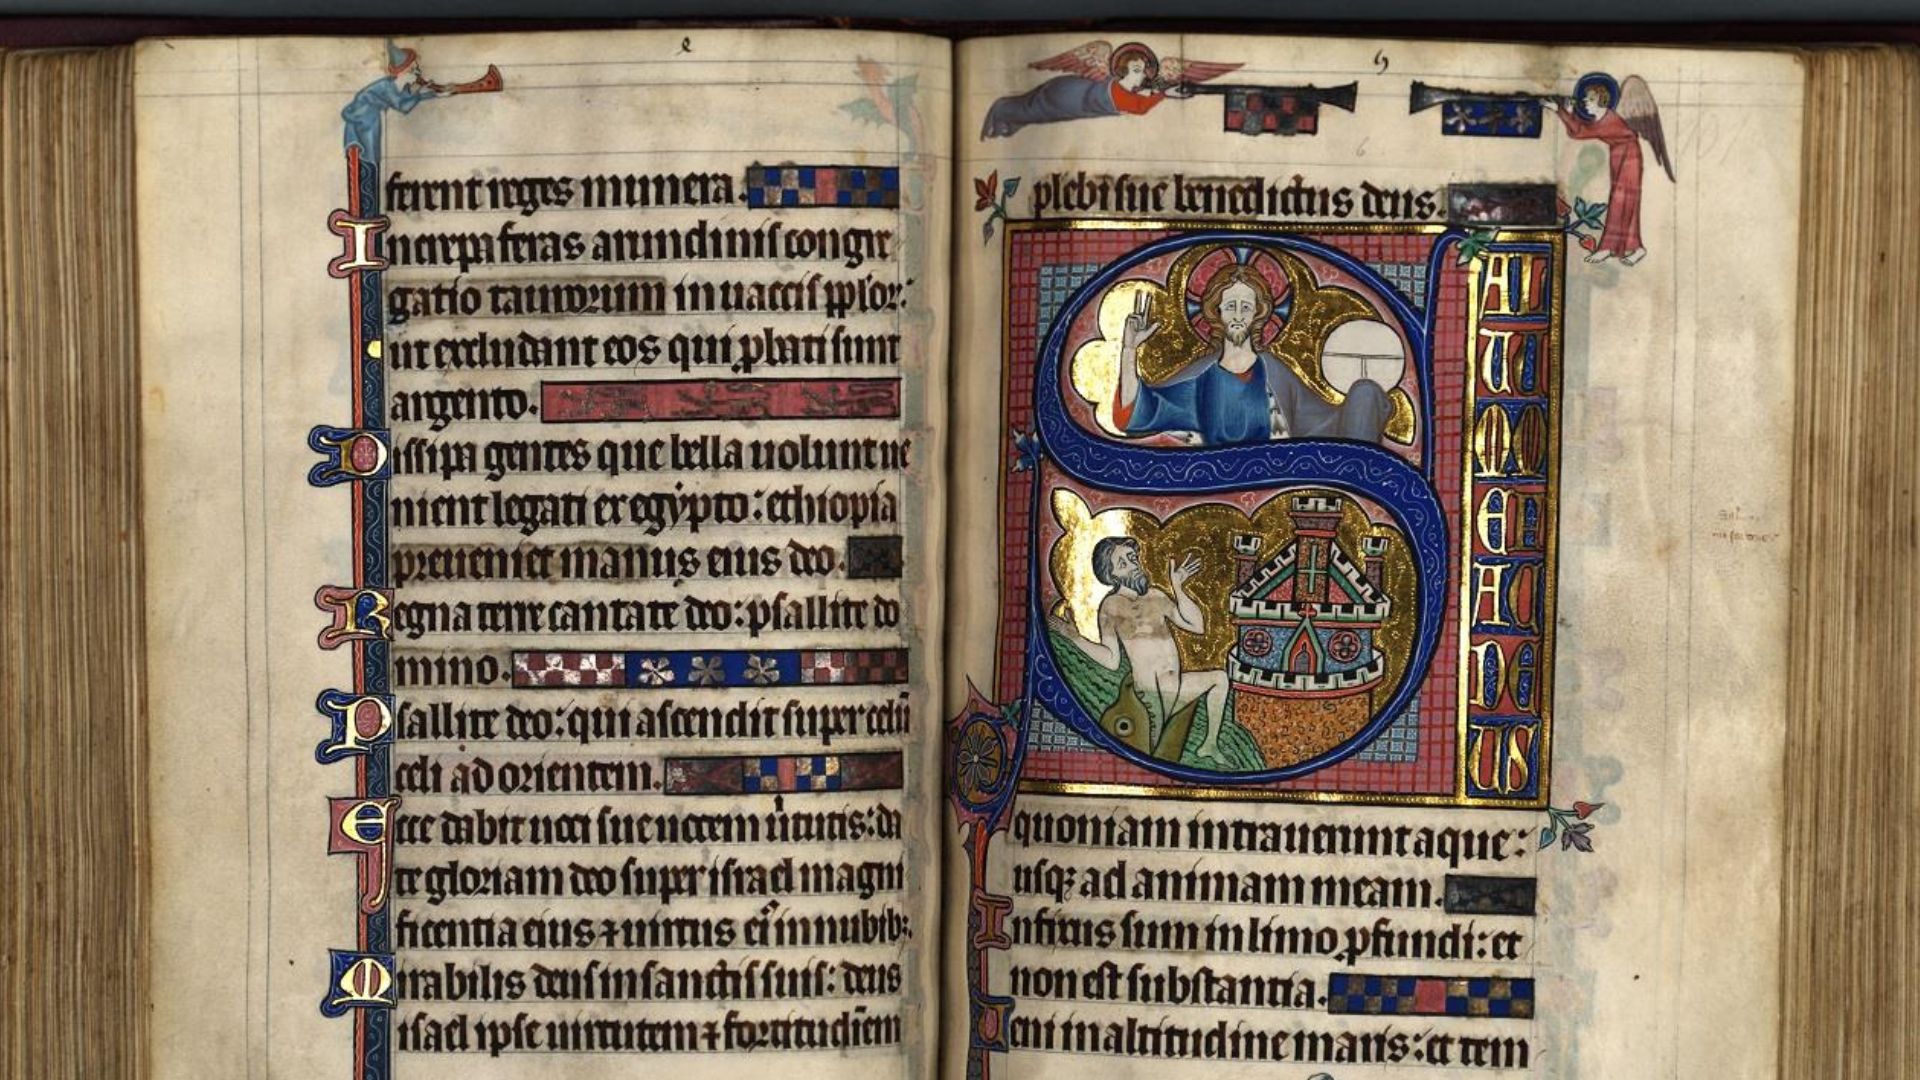 e
ferent reges munera.
Increpa feras arundinis congre
gatio taurorum in uaccis pplor:
ut excludant eos qui pbati sunt
argento.
Dissipa gentes que bella uolunt ue
nient legati ex egypto: ethiopia
preueniet manus eius deo.
Regna terre cantate deo: psallite do
mino.
Psallite deo: qui ascendit super celū
celi ad orientem.
Ecce dabit uoci sue uocem uͥtutis: da
te gloriam deo super israel magni
ficentia eius ⁊ uirtus eiꝰ in nubib;
Mirabilis deus in sanctis suis: deus
israel ipse uirtutem ⁊ fortitudīem
plebi sue benedictus deus.
SALUUM ME FAC DEUS
quoniam intrauerunt aque:
usq; ad animam meam.
Infixus sum in limo pfundi: et
non est substantia.
Ueni in altitudine maris: et tem